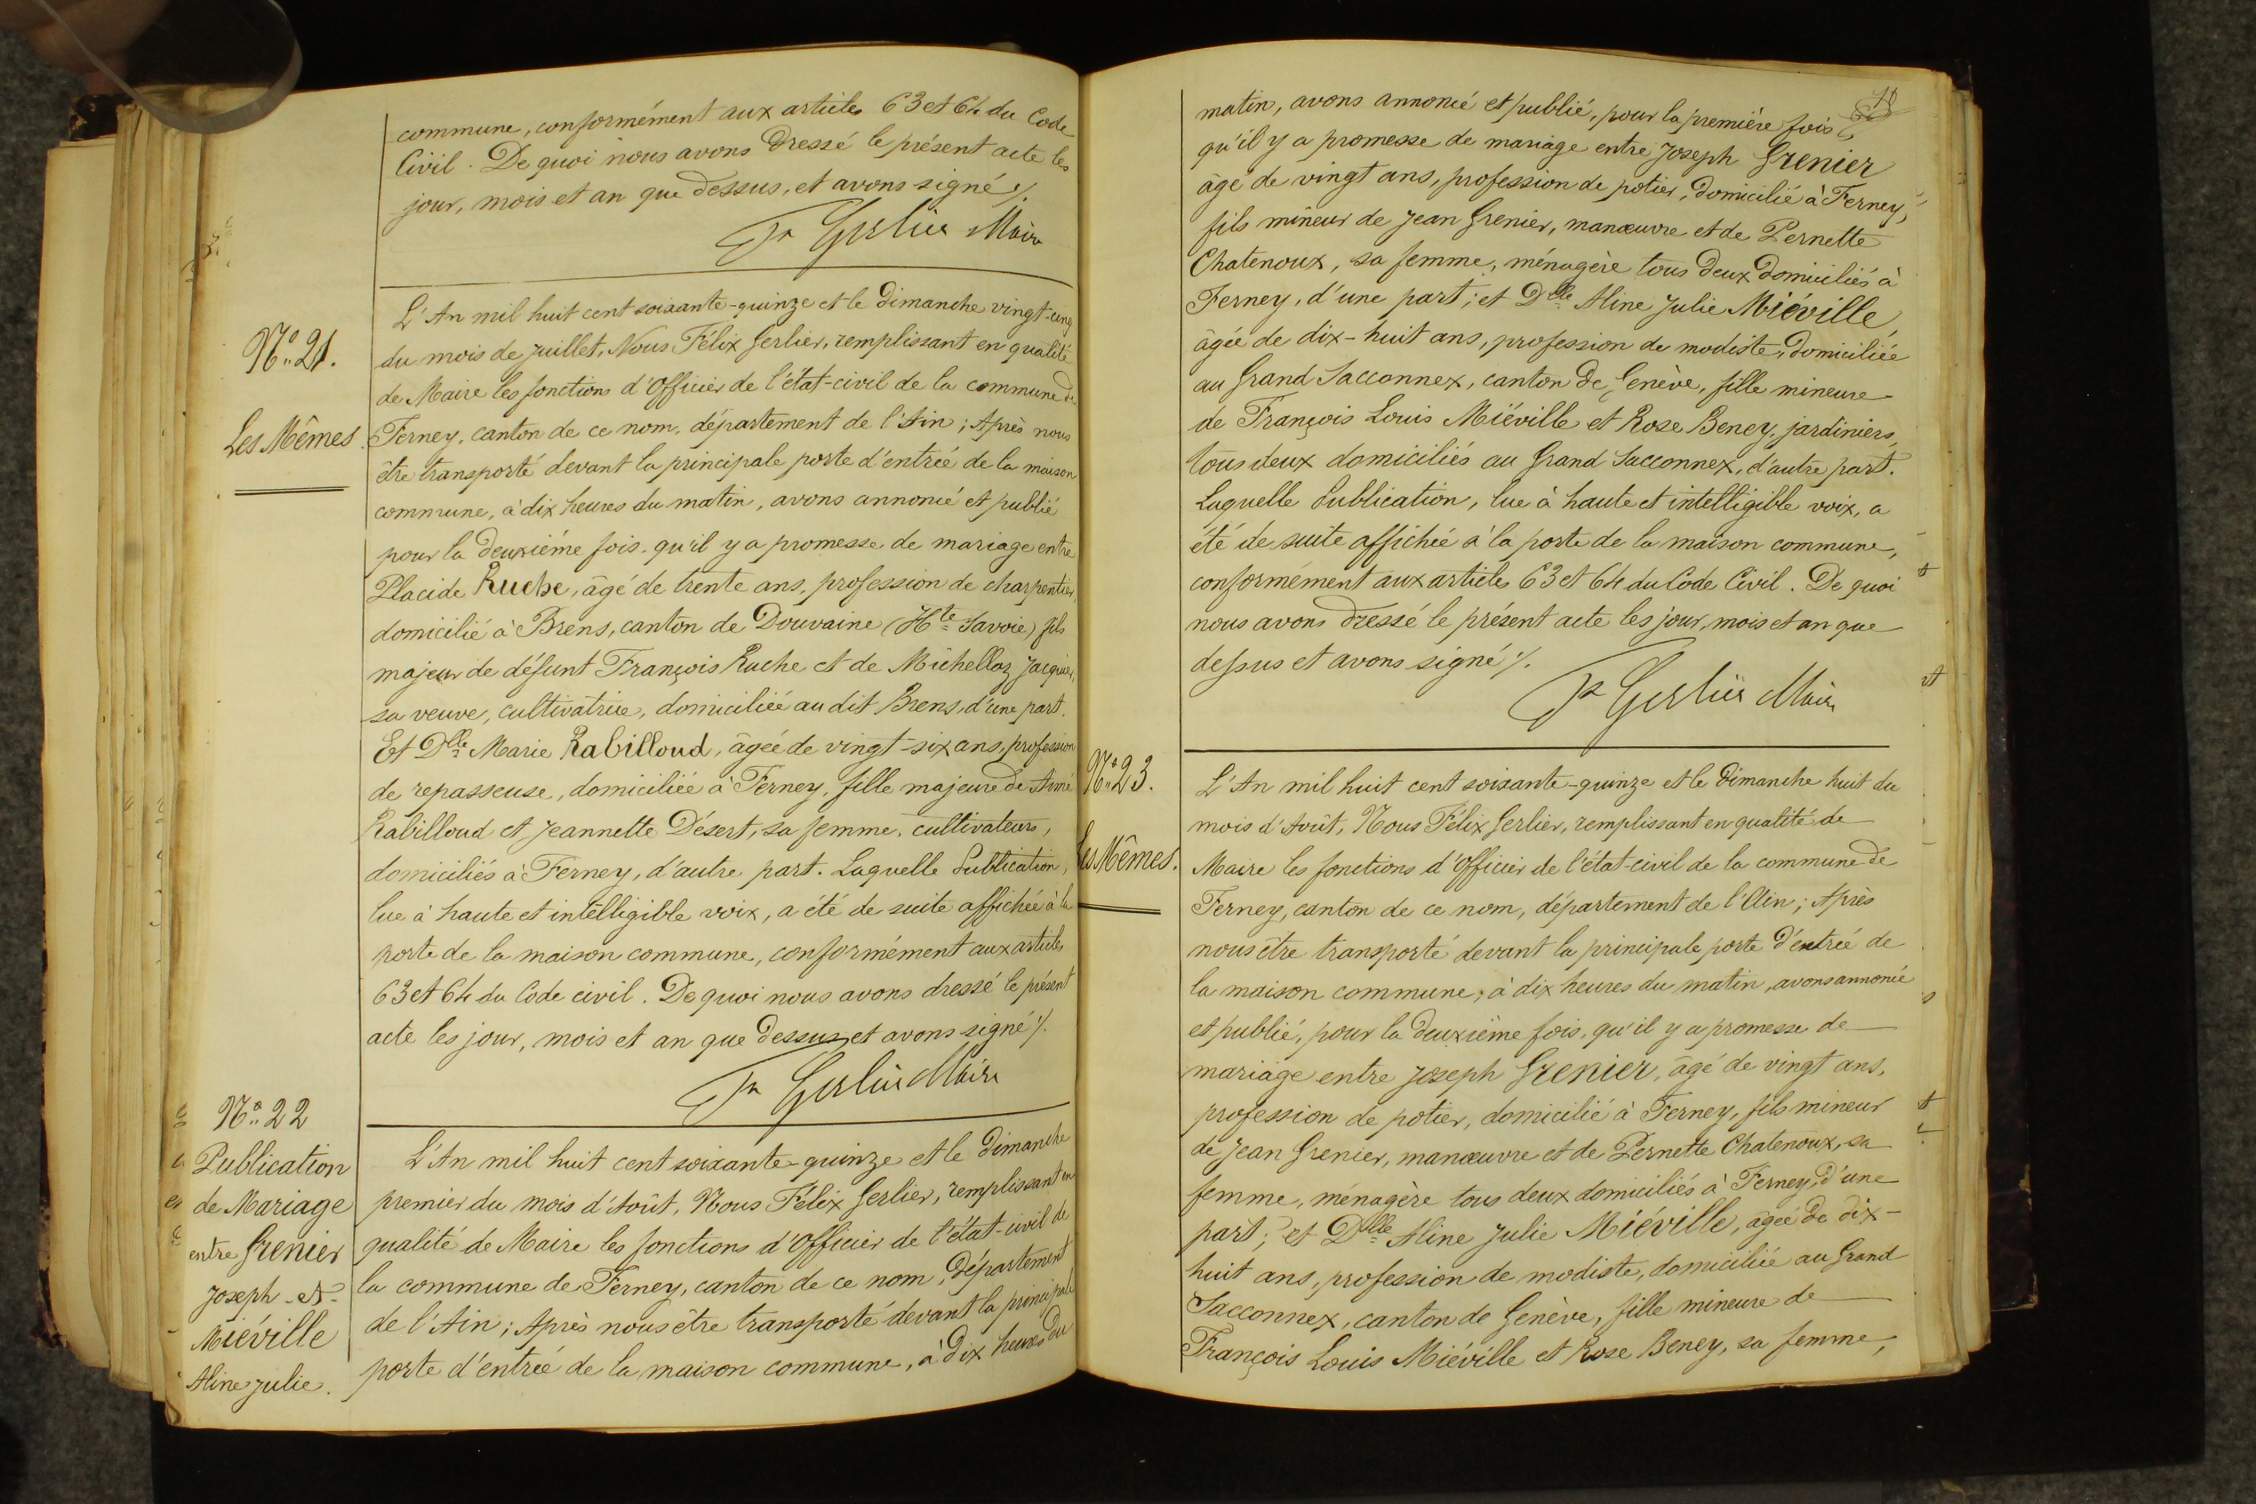 commune, conformément aux articles 63 et 64 du Code
Civil. De quoi nous avons dressé le présent acte les
jour, mois et an que dessus, et avons signé ./.
Fx Gerlier Maire
N° 21.
Les Mêmes.
L'An mil huit cent soixante-quinze et le dimanche vingt-cinq
du mois de Juillet, Nous Félix Gerlier, remplissant en qualité
de Maire les fonctions d'Officier de l'état-civil de la commune de
Ferney, canton de ce nom, département de l'Ain; Après nous
être transporté devant la principale porte d'entrée de la maison
commune, à dix heures du matin, avons annoncé et publié
pour la deuxième fois, qu'il y a promesse de mariage entre
Placide Ruche, âgé de trente ans, profession de charpentier,
domicilié à Brens, canton de Douvaine (Hte Savoie) fils
majeur de défunt François Ruche et de Michelloz Jacquier,
sa veuve, cultivatrice, domiciliée au dit Brens, d'une part.
Et Dlle Marie Rabilloud, âgée de vingt-six ans, profession
de repasseuse, domiciliée à Ferney, fille majeure de Aimé
Rabilloud et Jeannette Désert, sa femme, cultivateurs,
domiciliés à Ferney, d'autre part. Laquelle Publication,
lue à haute et intelligible voix, a été de suite affichée à la
porte de la maison commune, conformément aux articles
63 et 64 du Code civil. De quoi nous avons dressé le présent
acte les jour, mois et an que dessus et avons signé ./.
Fx Gerlier Maire
N° 22
Publication
de Mariage
entre Grenier
Joseph et
Miéville
Aline Julie.
L'An mil huit cent soixante-quinze et le dimanche
premier du mois d'Août, Nous Félix Gerlier, remplissant en
qualité de Maire les fonctions d'Officier de l'état-civil de
la commune de Ferney, canton de ce nom, département
de l'Ain; Après nous être transporté devant la principale
porte d'entrée de la maison commune, à dix heures du
matin, avons annoncé et publié, pour la première fois
qu'il y a promesse de mariage entre Joseph Grenier
âgé de vingt ans, profession de potier, domicilié à Ferney,
fils mineur de Jean Grenier, manœuvre et de Pernette
Chatenoux, sa femme, ménagère tous deux domiciliés à
Ferney, d'une part; et Dlle Aline Julie Miéville,
âgée de dix-huit ans, profession de modiste, domiciliée
au Grand Sacconnex, canton de Genève, fille mineure
de François Louis Miéville et Rose Beney, jardiniers,
tous deux domiciliés au Grand Sacconnex, d'autre part.
Laquelle Publication, lue à haute et intelligible voix, a
été de suite affichée à la porte de la maison commune,
conformément aux articles 63 et 64 du Code Civil. De quoi
nous avons dressé le présent acte les jour, mois et an que
dessus et avons signé ./.
Fx Gerlier Maire
N° 23.
Les Mêmes.
L'An mil huit cent soixante-quinze et le dimanche huit du
mois d'Août, Nous Félix Gerlier, remplissant en qualité de
Maire les fonctions d'Officier de l'état-civil de la commune de
Ferney, canton de ce nom, département de l'Ain; Après
nous être transporté devant la principale porte d'entrée de
la maison commune, à dix heures du matin, avons annoncé
et publié, pour la deuxième fois, qu'il y a promesse de
mariage entre Joseph Grenier, âgé de vingt ans,
profession de potier, domicilié à Ferney, fils mineur
de Jean Grenier, manœuvre et de Pernette Chatenoux, sa
femme, ménagère tous deux domiciliés à Ferney, d'une
part; et Dlle Aline Julie Miéville, âgée de dix-
huit ans, profession de modiste, domiciliée au Grand
Sacconnex, canton de Genève, fille mineure de
François Louis Miéville et Rose Beney, sa femme,